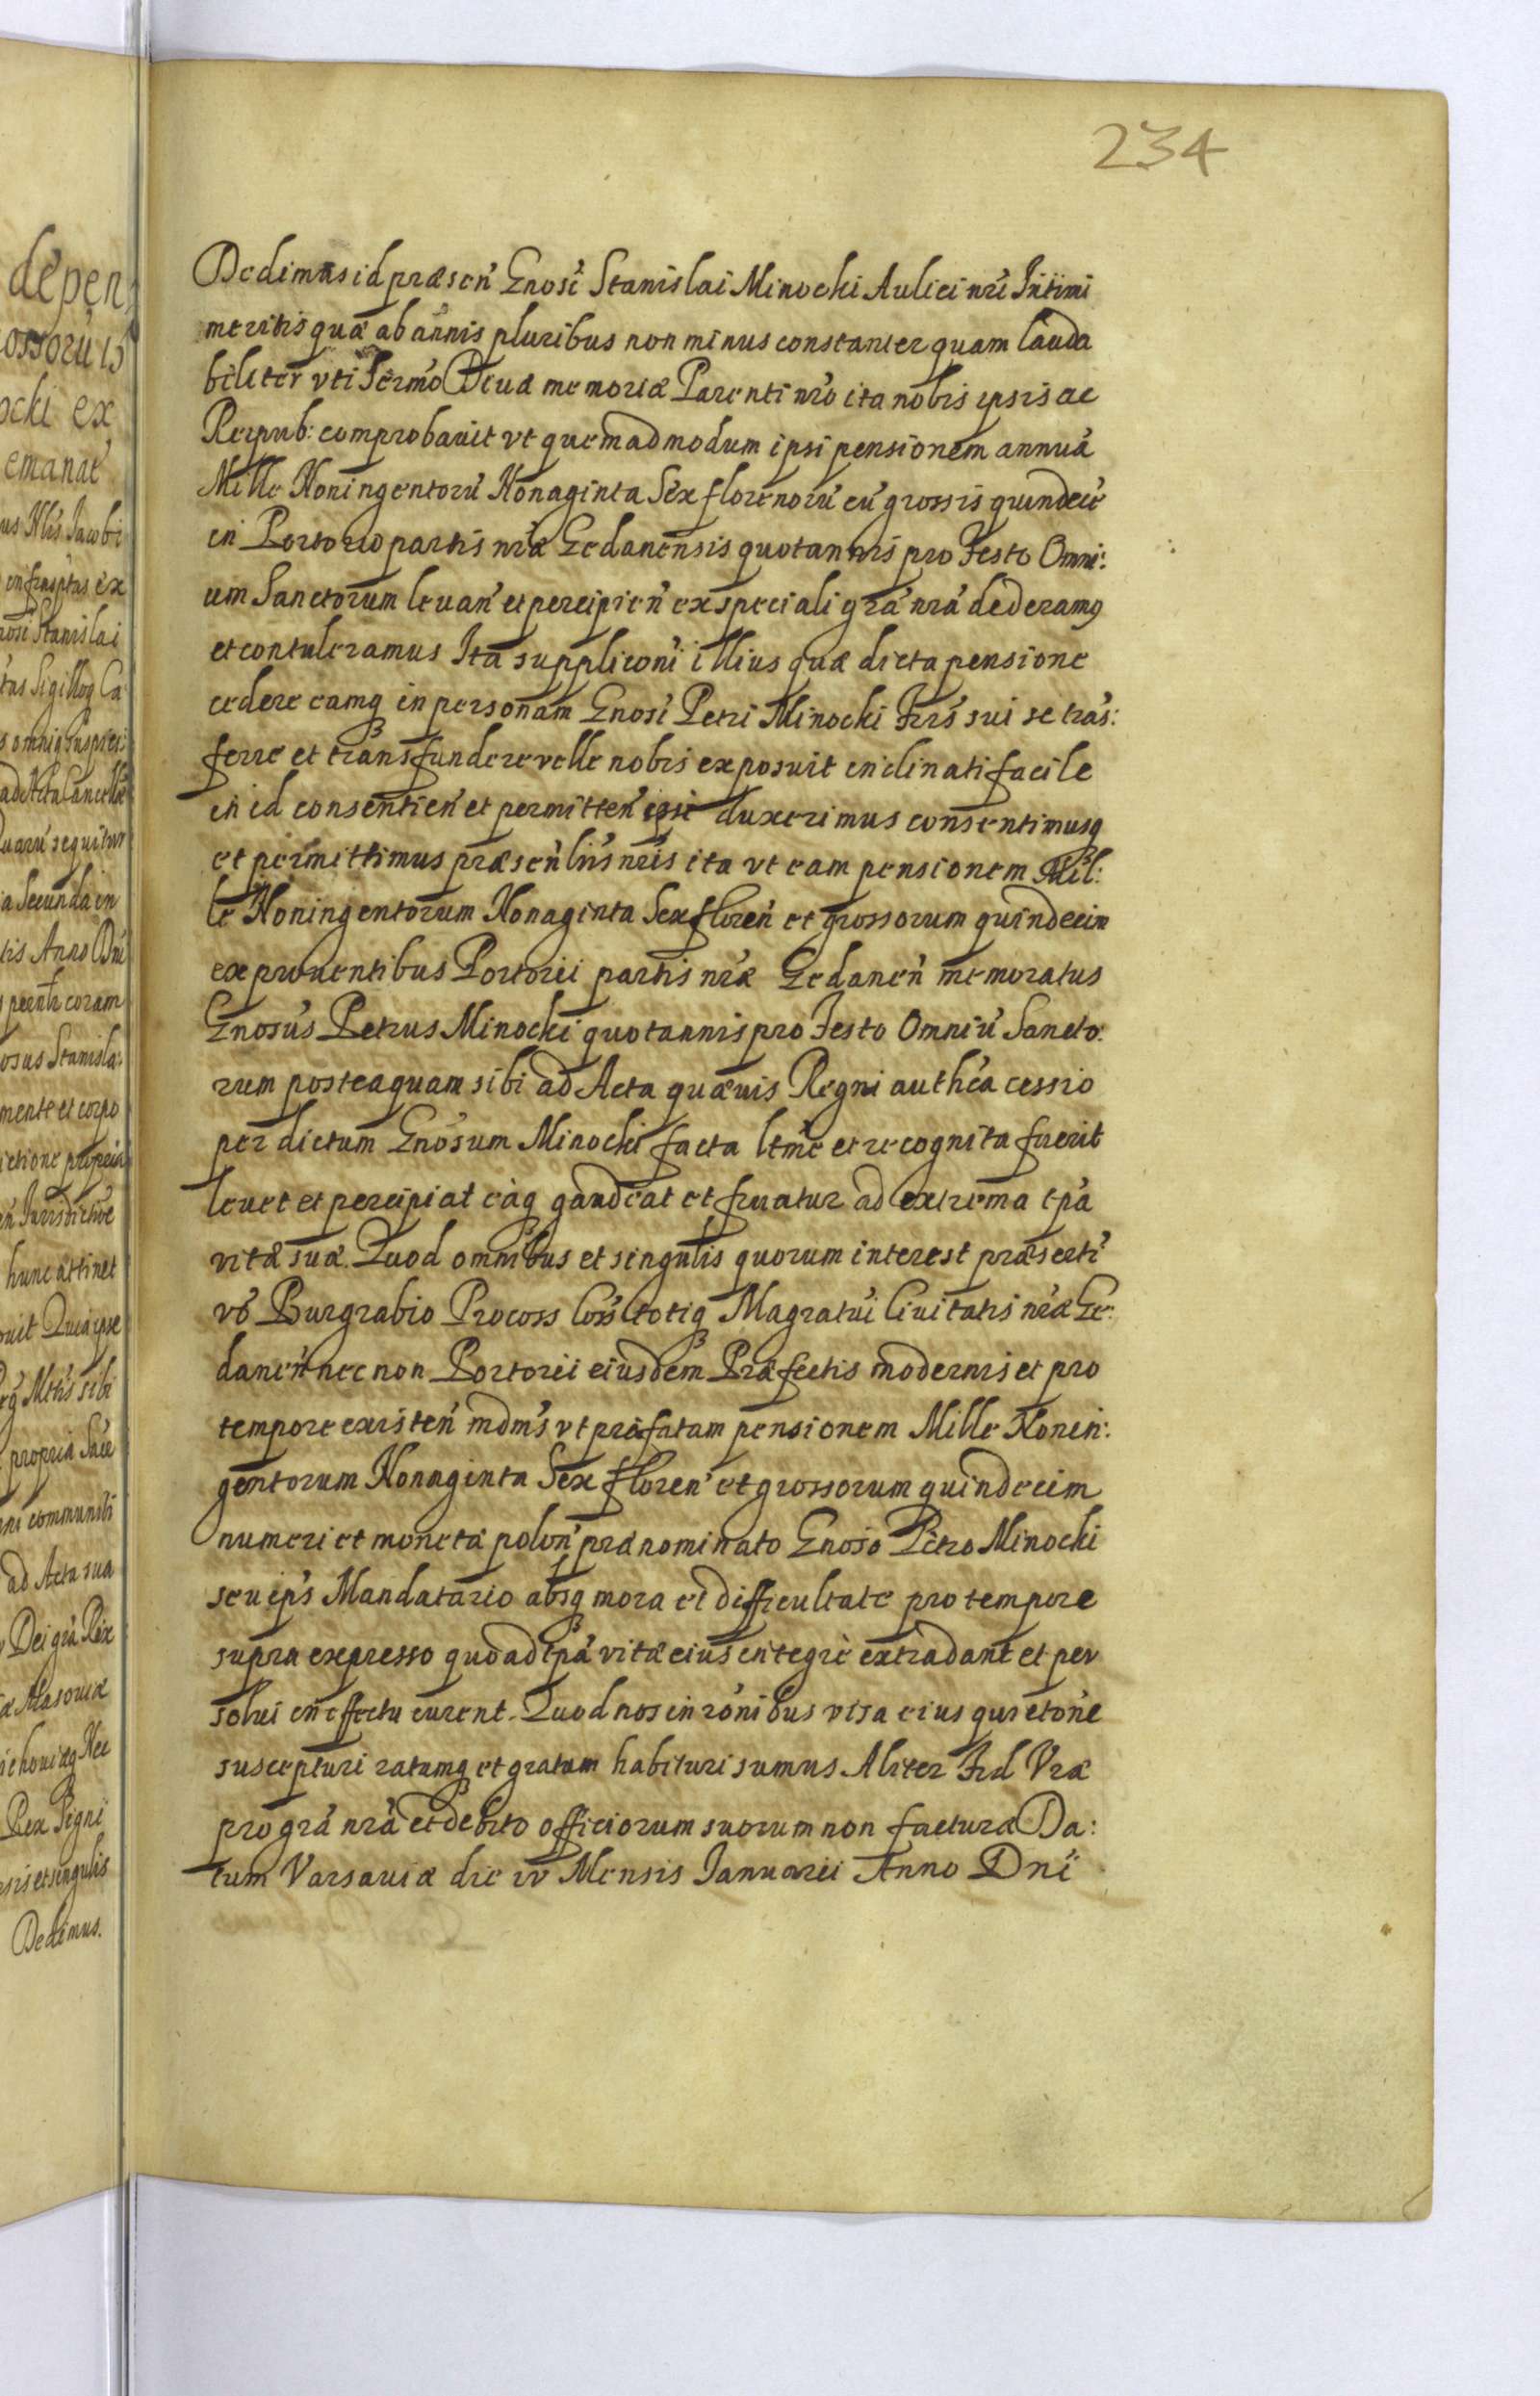 234
depen
ossorũ 15
ocki ex
emanat
us Nlis Jacobi
infrasptus ex
nosi Stanislai
ad Acta Cancellæ
uarũ sequitur
a Secunda in
tis Anno Dni
coram
osus Stanisla:
mente et corpo
hunc attinet
uit Quia ipse
propria
ad Acta sua
Dei grã Rex
æ Masoviæ
Rex Signi
sis et singulis
Dedimus.
Dedimus id præsen̄ Gnosi Stanislai Minocki Aulici nr̃i Intimi
meritis quæ ab annis pluribus non minus constanter quam lauda
biliter vti Sermo Diuæ memoriæ Parenti nr̃o ita nobis ipsis ac
Reipub: comprobauit vt quemadmodum ipsi pensionem annuã
Mille Noningentorũ Nonaginta Sex florenorũ cũ grossis quindecĩ
in Portorio partis nr̃æ Gedanensis quotannis pro Festo Omni:
um Sanctorum leuan̄ et percipien̄ ex speciali grã nr̃a dederamq
et contuleramus Ita suppliconi illius qua dicta pensione
cedere eamq in personam Gnosi Petri Minocki Frĩs sui se trãs:
ferre et transfundere velle nobis exposuit inclinati facile
in id consentien̄ et permitten̄ ipsi duxerimus consentimusq
et permittimus præsen̄ lr̃is nr̃is ita vt eam pensionem Mil:
le Noningentorum Nonaginta Sex floren̄ et grossorum quindecim
ex prouentibus Portorii partis nr̃æ Gedanen̄ memoratus
Gnosus Petrus Minocki quotannis pro Festo Omniũ Sancto:
rum posteaquam sibi ad Acta quæuis Regni authẽa cessio
per dictum Gnosum Minocki facta ltm̃e et recognita fuerit
leuet et percipiat eãq gaudeat et fruatur ad extrema tpã
vitæ suæ. Quod omnibus et singulis quorum interest præsertĩ
võ Burgrabio Procoss Coss̃ totiq Magratui Ciuitatis nr̃æ Ge:
danen̄ nec non Portorii eiusdem Præfectis modernis et pro
tempore existen̄ mdm̃s vt præfatam pensionem Mille Nonin:
gentorum Nonaginta Sex floren̄ et grossorum quindecim
numeri et monetæ polon̄ prænominato Gnoso Petro Minocki
seu ips̃ Mandatario absq mora et difficultate pro tempore
supra expresso quoad tpã vitæ eius integre extradant et per
solui in effectu curent. Quod nos in rõnibus visa eius quietone
suscepturi ratumq et gratum habituri sumus Aliter Frd Vræ
pro grã nr̃a et debito officiorum suorum non facturæ Da:
tum Varsauiæ die iv Mensis Januarii Anno Dni